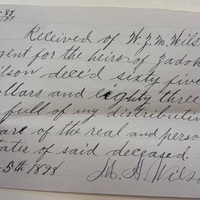 Received of W. F. M. Wils
gent for the heirs of Zadok
ilson dec'd sixty five
ollars and eighty three
full of my distributive
are of the real and person
tates of said deceased.
5th 1898
Wils